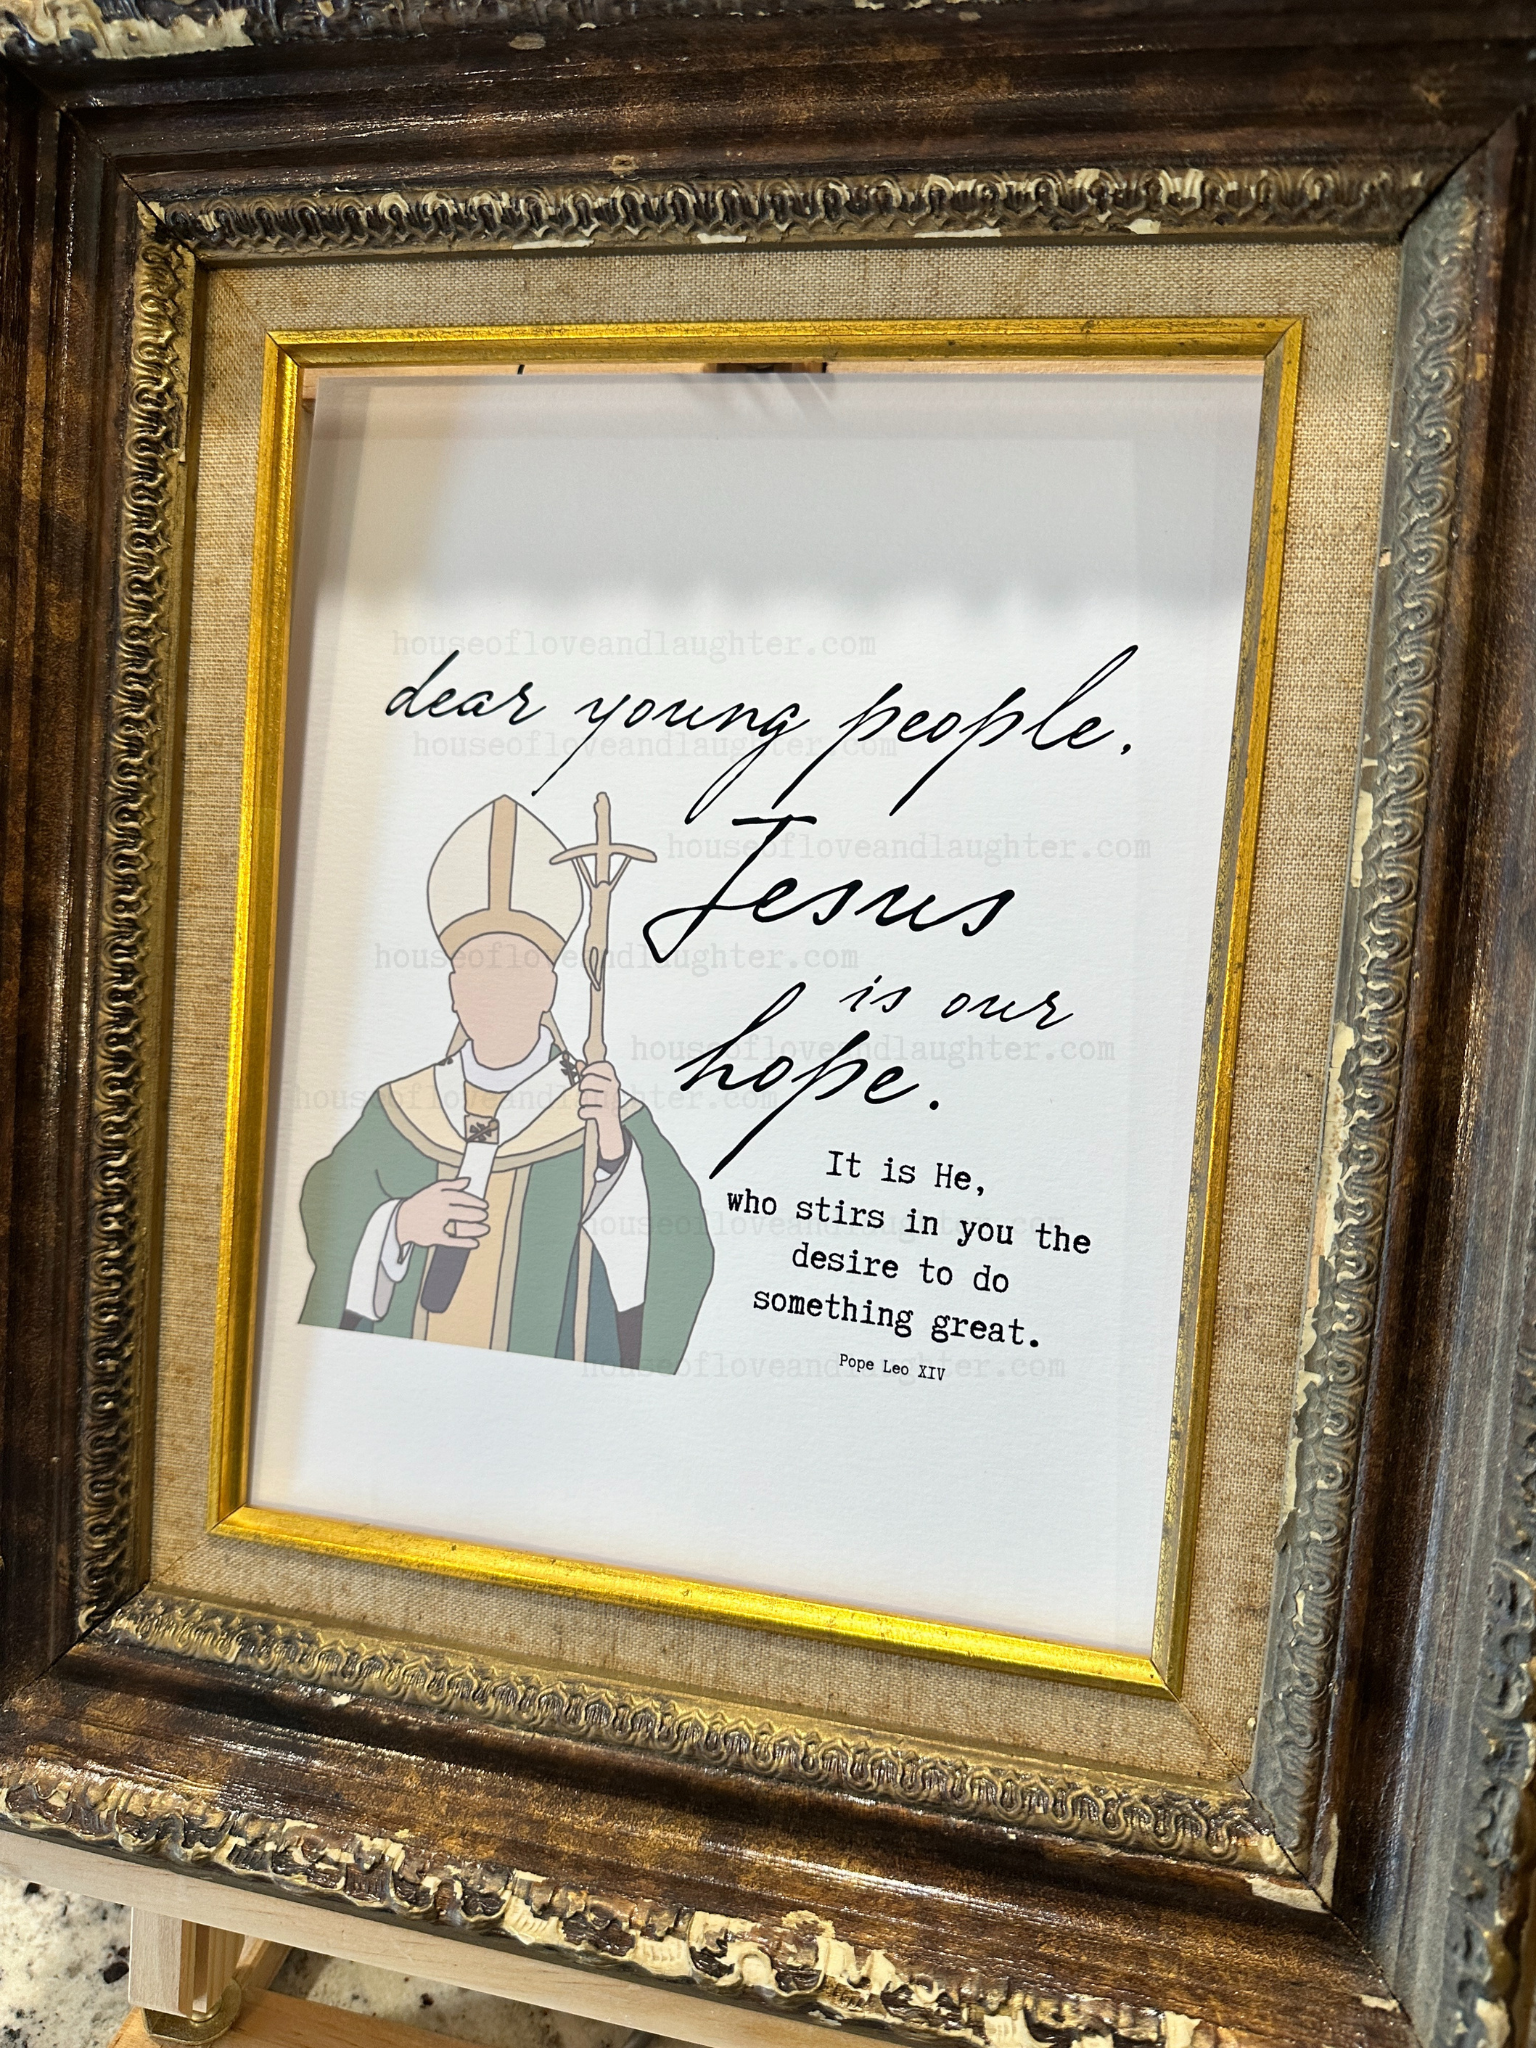 houseofloveandlaughter.com
dear young people,
houseofloveandlaughter.com
Jesus
houseofloveandlaughter.com
houseofloveandlaughter.com
is our
houseofloveandlaughter.com
hope.
houseofloveandlaughter.com
It is He,
who stirs in you the
houseofloveandlaughter.com
desire to do
something great.
Pope Leo XIV
houseofloveandlaughter.com